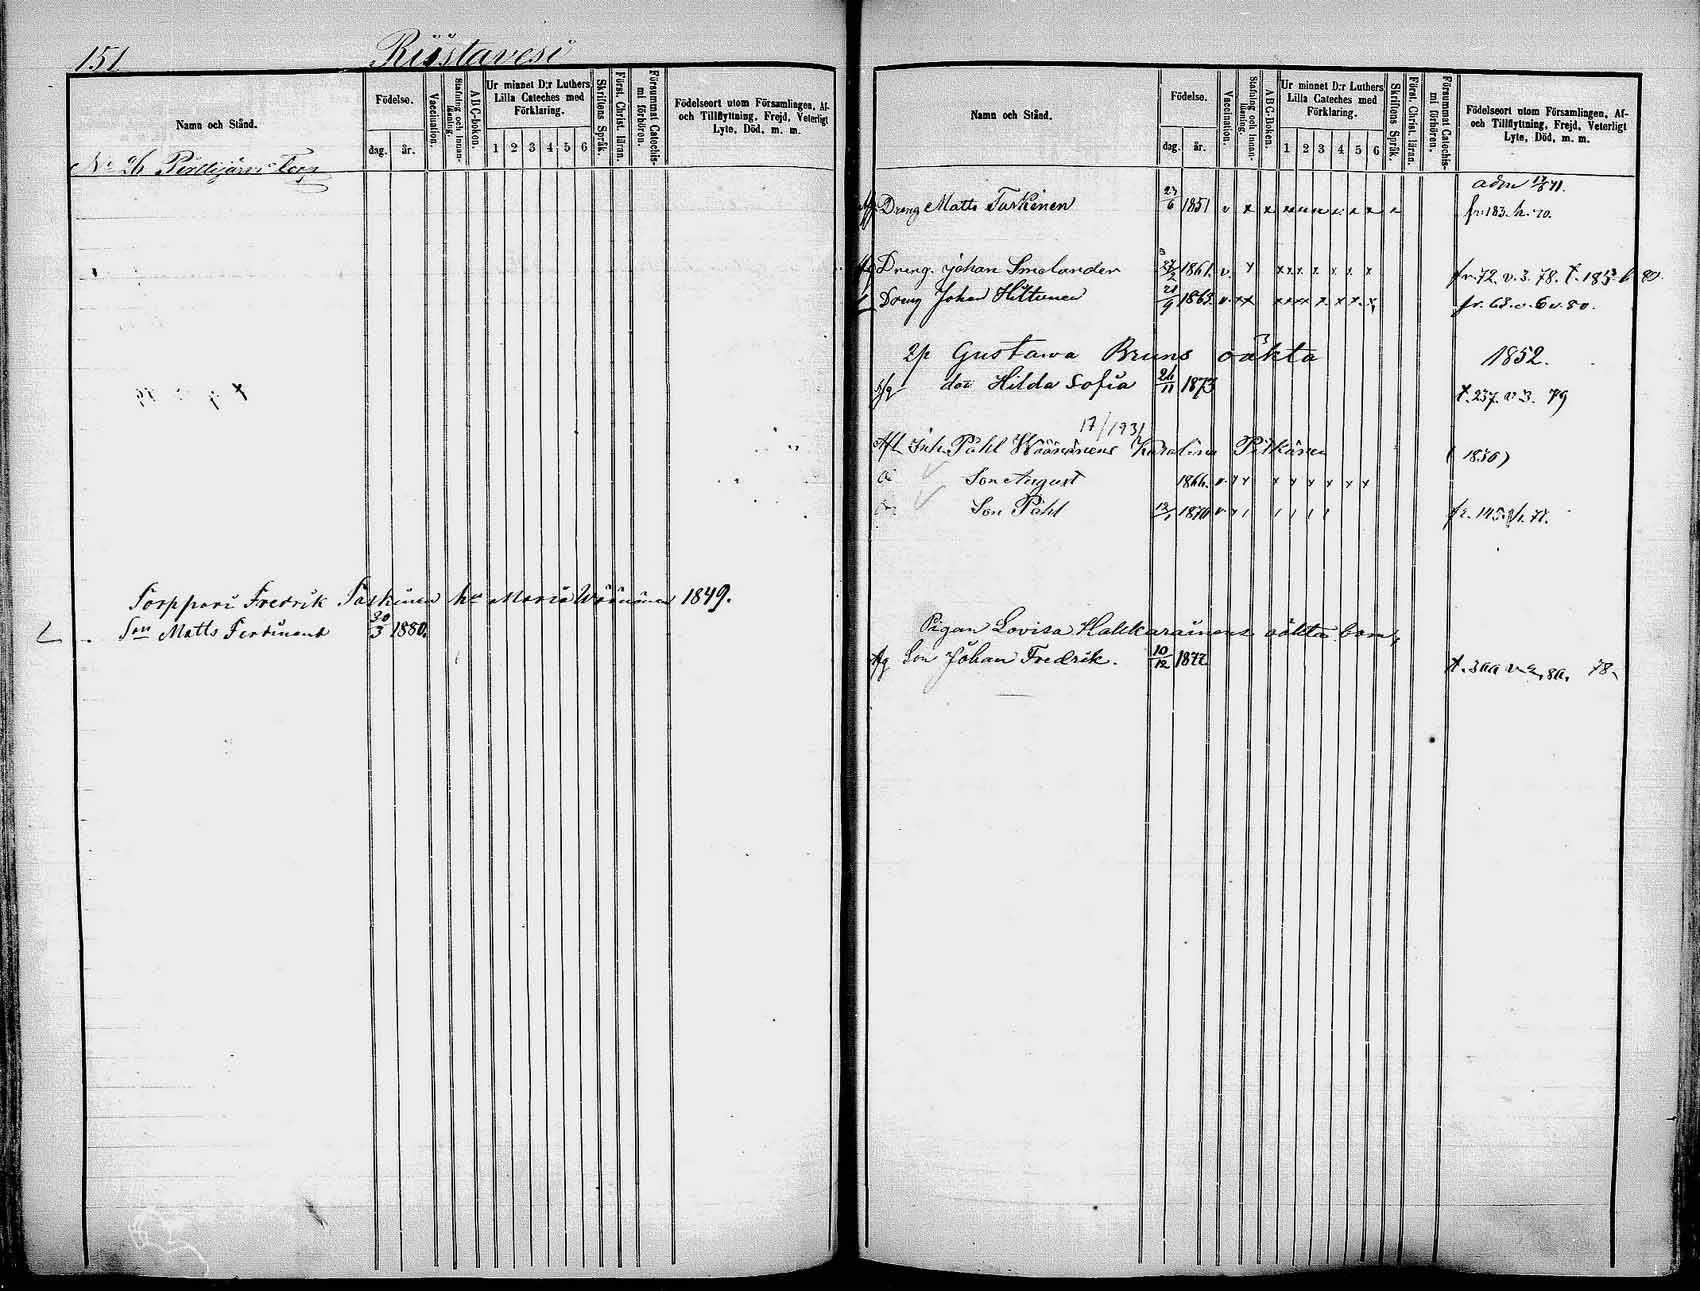 151
Riistavesi
Namn och Stånd.
Födelse.
dag. år.
Vaccination.
Stafning och Innan-läsning.
ABC-boken.
Ur minnet D:r Luthers
Lilla Cateches med
Förklaring.
1 2 3 4 5 6
Skriftens Språk.
Först. Christ. läran.
Försummat Catechis-mi förhören.
Födelseort utom Församlingen, Af-
och Tillflyttning, Frejd, Veterligt
Lyte, Död, m. m.
No 26 Torp
Torppari Fredrik Taskinen hu Maria Wäänänen 1849.
Son Matts Ferdinand 30/3 1880.
Namn och Stånd.
Födelse.
dag. år.
Vaccination.
Stafning och Innan-läsning.
ABC-boken.
Ur minnet D:r Luthers
Lilla Cateches med
Förklaring.
1 2 3 4 5 6
Skriftens Språk.
Först. Christ. läran.
Försummat Catechis-mi förhören.
Födelseort utom Församlingen, Af-
och Tillflyttning, Frejd, Veterligt
Lyte, Död, m. m.
Dreng Matts Taskinen 1851 v x x x x x x x fr. 183. h. 70.
Dreng. Johan Smolander 1861. v. x x x x x x x fr. 72. v. 3. 78.
Dreng Johan Hiltunen 21/9 1862 v x x x x x x x x fr. 68. v. 6 v. 80.
Gustawa Bruns oäkta 1852.
dot Hilda Sofia 26/11 1873 t. 237. v. 3. 79
17/1931
Inh. Påhl Wäänänens Karolina Pitkänen (1836)
Son August 1866. v. x x x x x x x x
Son Påhl 1870 v
Pigan Lovisa Hakkarainens oäkta barn,
Son Johan Fredrik. 10/12 1877 78.